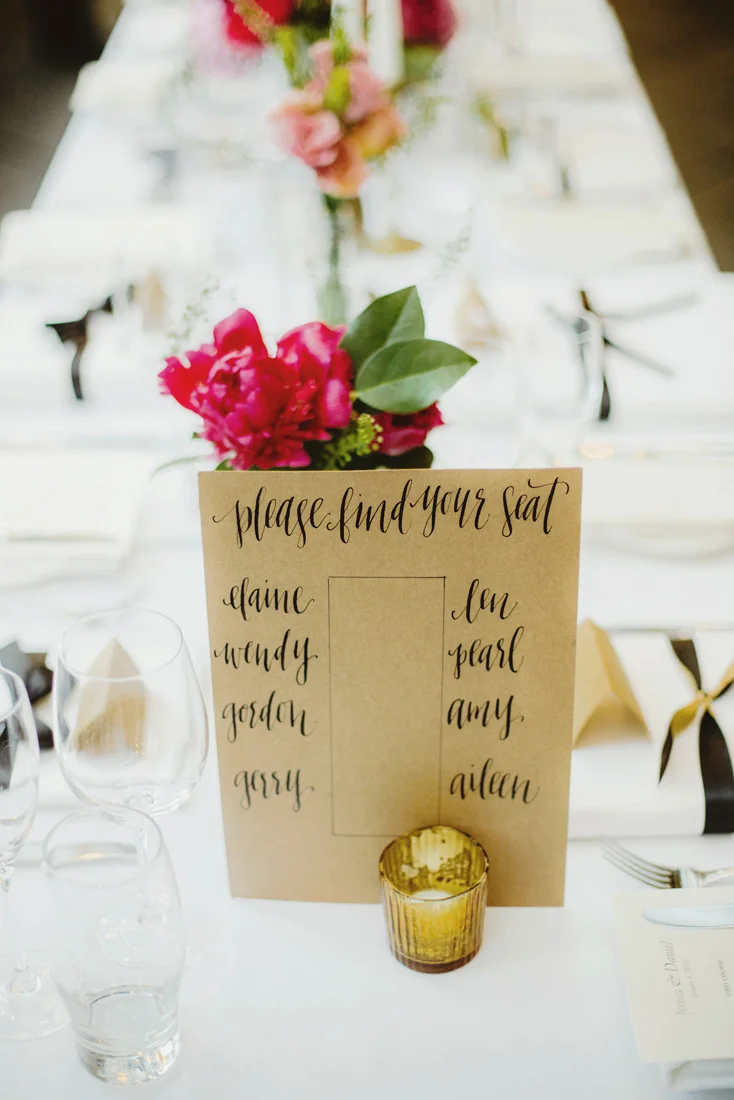 please find your seat
elaine
wendy
gordon
gerry
len
pearl
amy
aileen
Jessica & Daniel